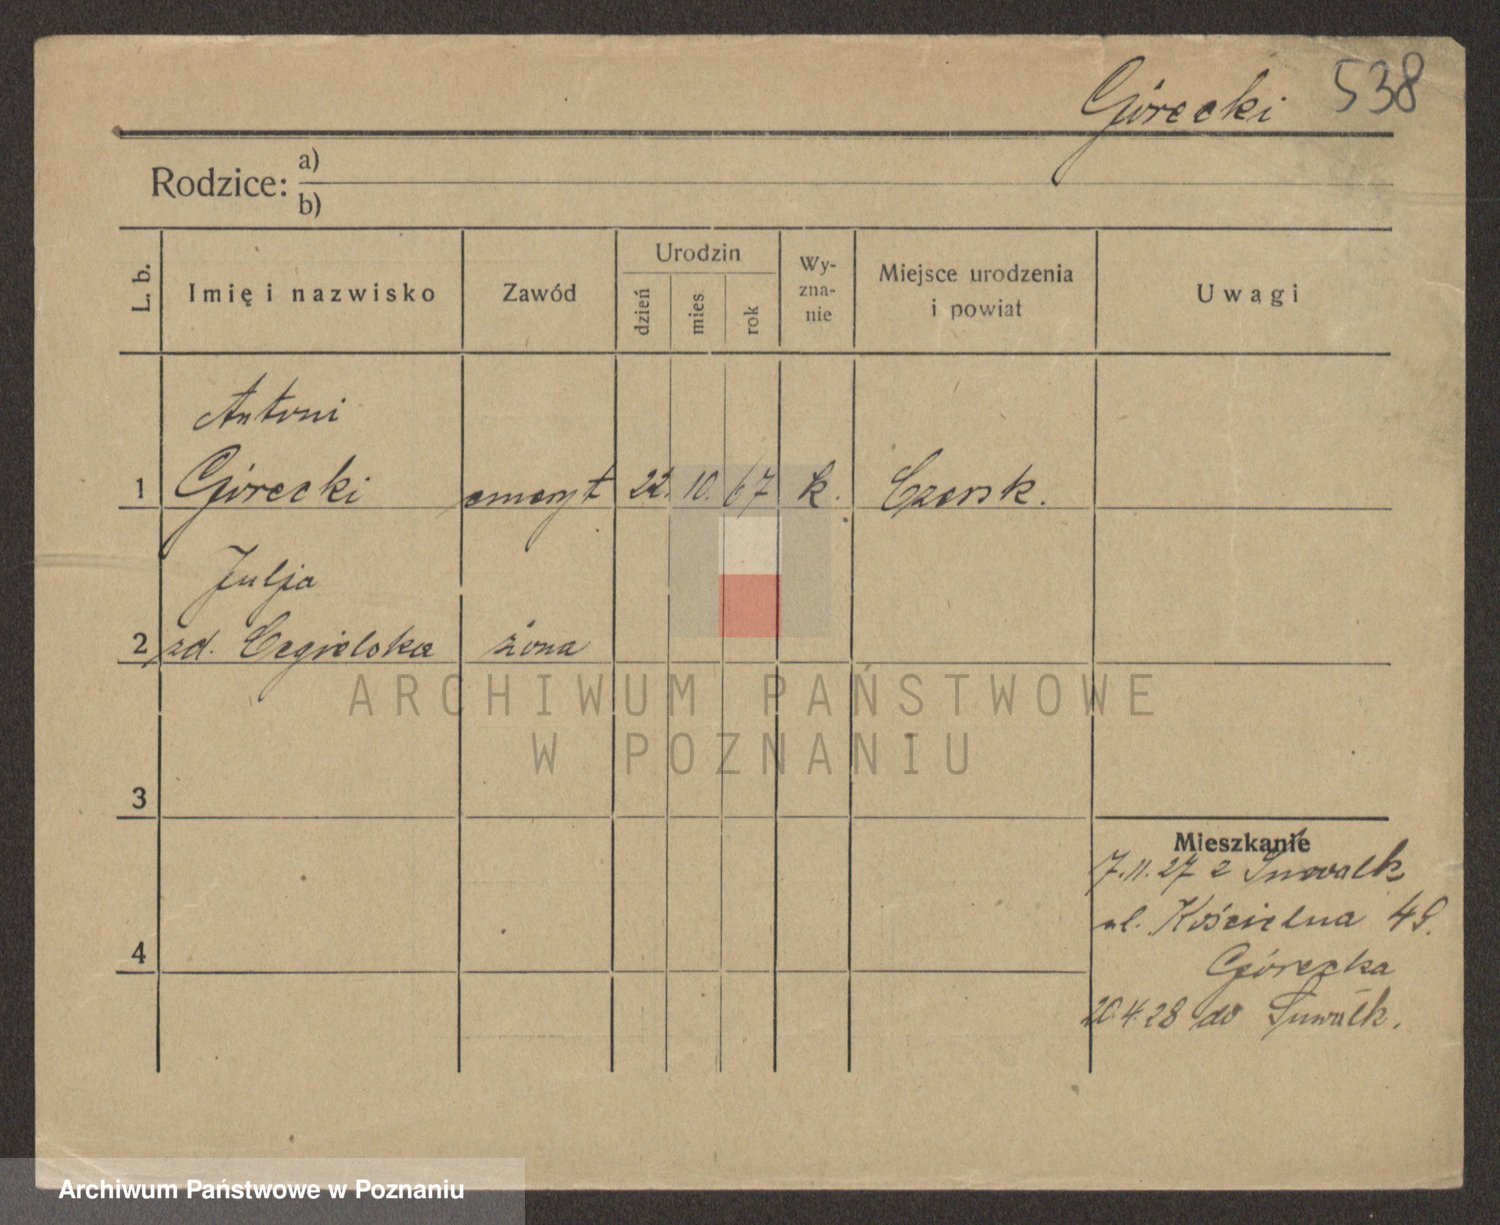 Górecki 538
Rodzice: a)
b)
L. b.
Imię i nazwisko
Zawód
Urodzin
dzień
mies
rok
Wy-
zna-
nie
Miejsce urodzenia
i powiat
Uwagi
Antoni
1 Górecki emeryt 22. 10. 67 k. Czersk.
Julja
2 zd. Cegielska żona
ARCHIWUM PAŃSTWOWE
W POZNANIU
3
Mieszkanie
7.11.27 z Suwałk
ul. Kościelna 49.
4
Górecka
20.4.28 do Suwałk.
Archiwum Państwowe w Poznaniu